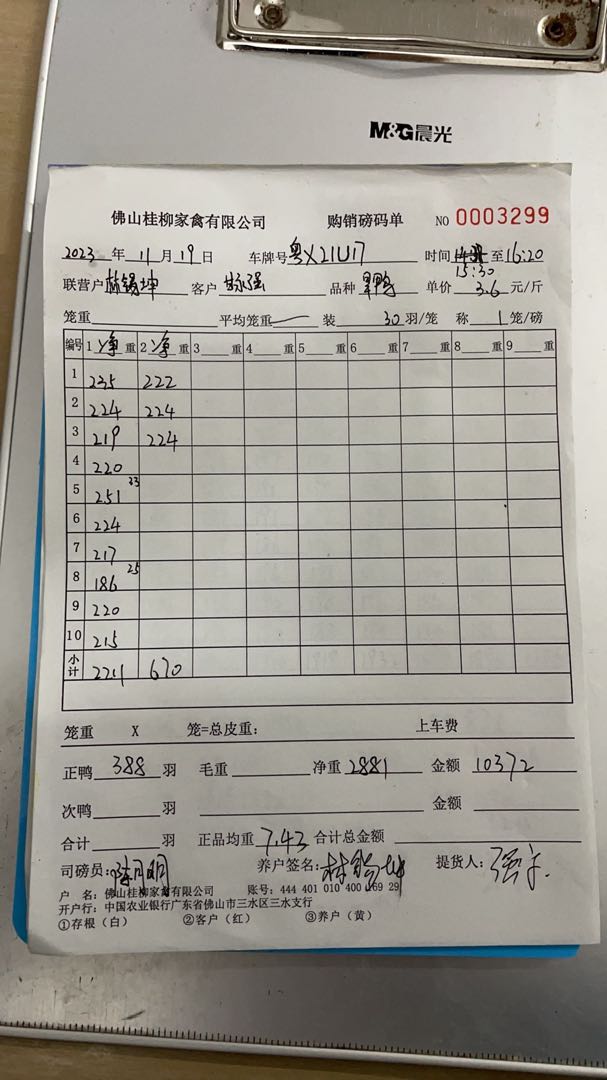 M&G晨光
佛山桂柳家禽有限公司 购销磅码单 NO 0003299
2023年 11月 19日 车牌号 粤X21U17 时间 至16:20
15:30
联营户 林锡坤 客户 强 品种 鸭 单价 3.6 元/斤
笼重 平均笼重 装 30 羽/笼 称 1 笼/磅
编号 1 净 重 2 净 重 3 重 4 重 5 重 6 重 7 重 8 重 9 重
1 235 222
2 224 224
3 219 224
4 220
5 251 33
6 224
7 217
8 186 25
9 220
10 215
小计 2211 670
笼重 X 笼=总皮重: 上车费
正鸭 388 羽 毛重 净重 2881 金额 10372
次鸭 羽 金额
合计 羽 正品均重 7.43 合计总金额
司磅员: 养户签名: 林锡坤 提货人:
户 名: 佛山桂柳家禽有限公司 账号: 444 401 010 400 169 29
开户行: 中国农业银行广东省佛山市三水区三水支行
①存根（白） ②客户（红） ③养户（黄）